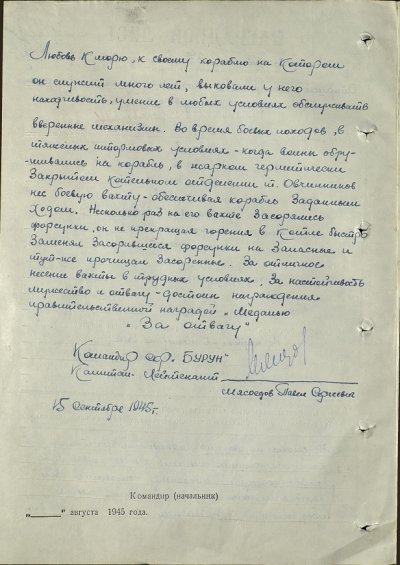 Любовь к морю, к своему кораблю на котором
он служит много лет, выковали у него
находчивость, умение в любых условиях обслуживать
вверенные механизмы. Во время боевых походов, в
тяжелых штормовых условиях - когда волны обру-
шивались на корабль, в жарком герметически
закрытом котельном отделении т. Овчинников
нес боевую вахту - обеспечивая корабль заданным
ходом. Несколько раз на его вахте засорялись
форсунки, он не прекращая горения в котле быстро
заменял засорившуюся форсунки на запасные и
тут-же прочищал засоренные. За отличное
несение вахты в трудных условиях, за настойчивость
мужество и отвагу - достоин награждения
правительственной наградой „Медалью
„За отвагу"
Командир СКР „БУРУН"
Капитан-лейтенант
Мясоедов Павел Сергеевич
15 сентября 1945 г.
Командир (начальник)
„____" августа 1945 года.